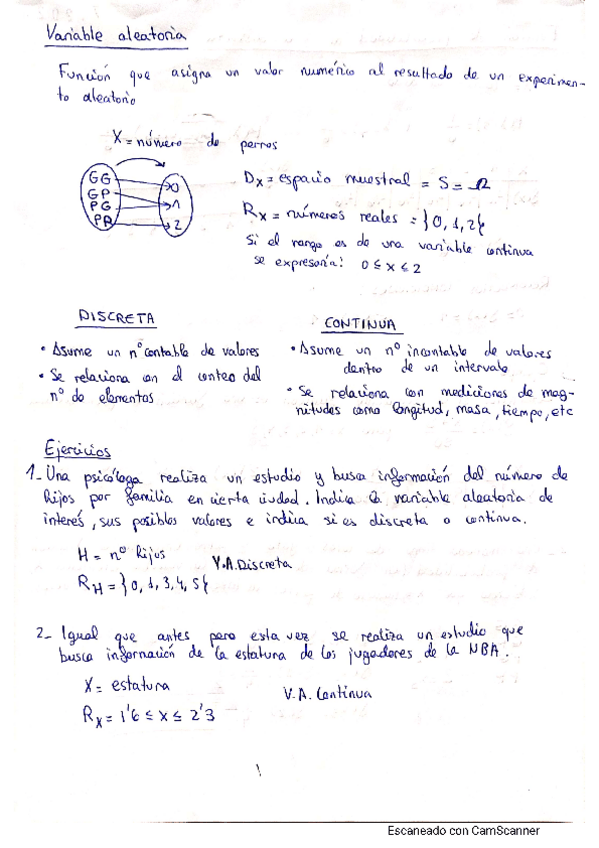 Variable aleatoria
Función que asigna un valor numérico al resultado de un experimen-
to aleatorio
X = número de perros
GG
GP
PG
PP
0
1
2
Dx = espacio muestral = S = Ω
Rx = números reales = {0, 1, 2}
Si el rango es de una variable continua
se expresaría: 0 ≤ x ≤ 2
DISCRETA
• Asume un nº contable de valores
• Se relaciona con el conteo del
nº de elementos
CONTINUA
• Asume un nº incontable de valores
dentro de un intervalo
• Se relaciona con mediciones de mag-
nitudes como longitud, masa, tiempo, etc
Ejercicios
1_ Una psicóloga realiza un estudio y busca información del número de
hijos por familia en cierta ciudad. Indica la variable aleatoria de
interés, sus posibles valores e indica si es discreta o continua.
H = nº hijos
V.A. Discreta
RH = {0, 1, 3, 4, 5}
2_ Igual que antes pero esta vez se realiza un estudio que
busca información de la estatura de los jugadores de la NBA.
X = estatura
V.A. Continua
Rx = 1'6 ≤ x ≤ 2'3
1
Escaneado con CamScanner